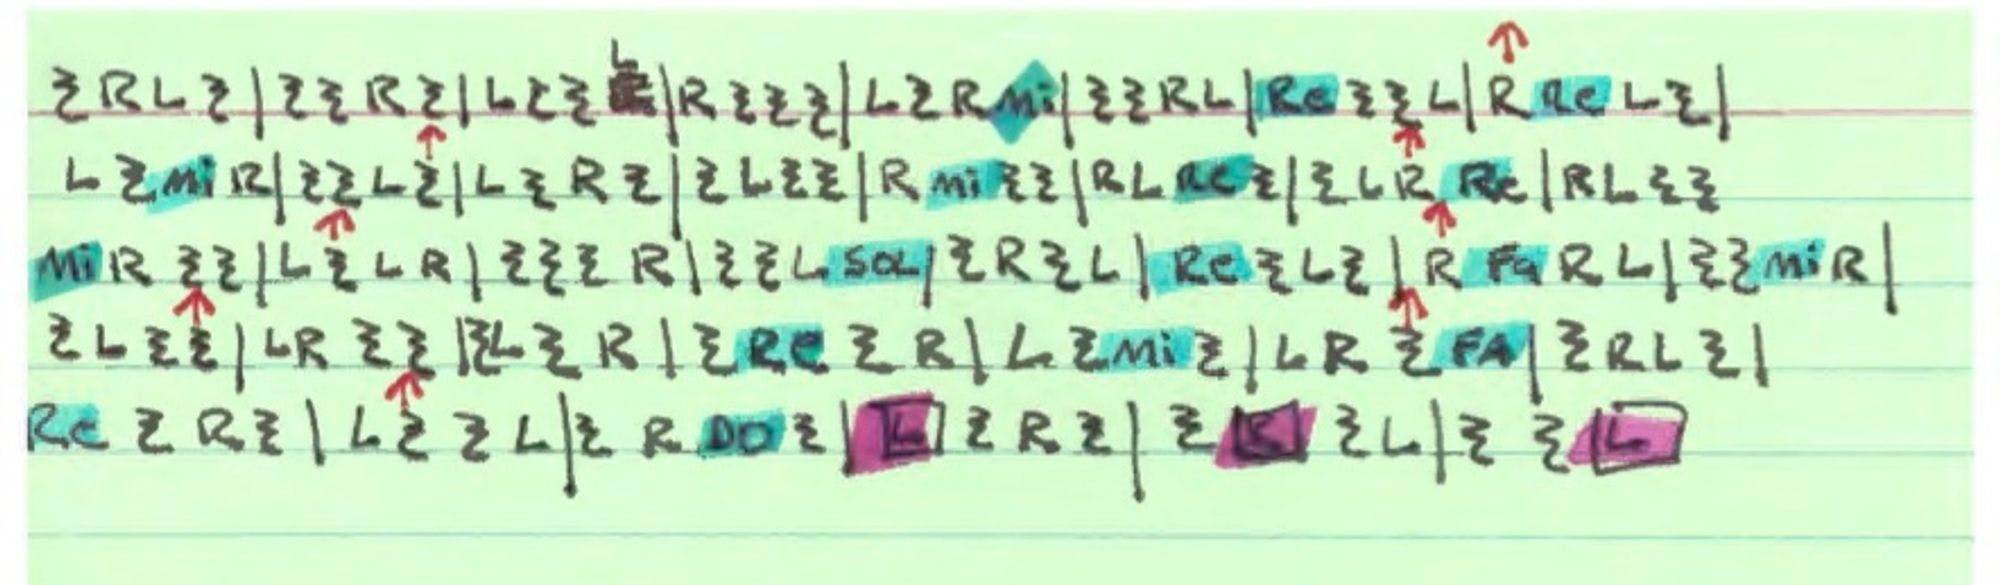 𝄽 R L 𝄽 | 𝄽 𝄽 R 𝄽 | L 𝄽 𝄽 L | R 𝄽 𝄽 𝄽 | L 𝄽 R Mi | 𝄽 𝄽 R L | Re 𝄽 𝄽 L | R Re L 𝄽 |
L 𝄽 Mi R | 𝄽 𝄽 L 𝄽 | L 𝄽 R 𝄽 | 𝄽 L 𝄽 𝄽 | R Mi 𝄽 𝄽 | R L Re 𝄽 | 𝄽 L R Re | R L 𝄽 𝄽
Mi R 𝄽 𝄽 | L 𝄽 L R | 𝄽 𝄽 𝄽 R | 𝄽 𝄽 L SOL | 𝄽 R 𝄽 L | Re 𝄽 L 𝄽 | R Fa R L | 𝄽 𝄽 Mi R |
𝄽 L 𝄽 𝄽 | L R 𝄽 𝄽 | 𝄽 L 𝄽 R | 𝄽 Re 𝄽 R | L 𝄽 Mi 𝄽 | L R 𝄽 FA | 𝄽 R L 𝄽 |
Re 𝄽 R 𝄽 | L 𝄽 𝄽 L | 𝄽 R DO 𝄽 | L 𝄽 R 𝄽 | 𝄽 R 𝄽 L | 𝄽 𝄽 L